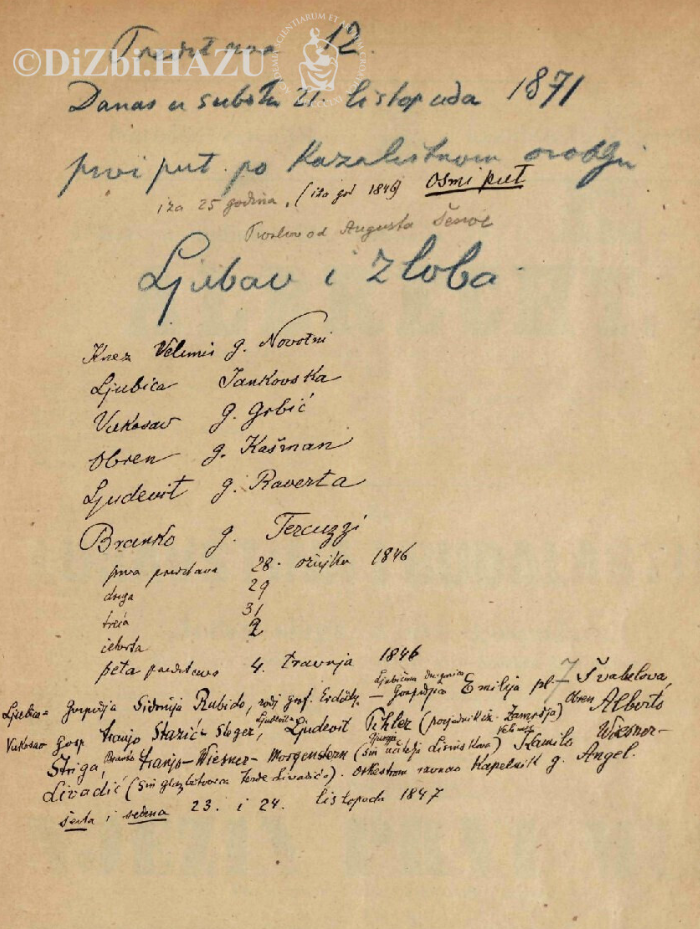 Predstava 12.
©DiZbi.HAZU
Danas u subotu 21. listopada 1871
prvi put po Kazalištnom
iza 25 godina, (iza god 1846) osmi put
od Augusta Šenoe
Ljubav i zloba.
Knez Velimir g. Novotni
Ljubica Jankovska
Vukosav g. Grbić
Obren g. Kašman
Ljudevit g. Raverta
Branko g. Tercuzzi
prva predstava 28. ožujka 1846
druga 29
treća 31
četvrta 2
peta predstava 4. travnja 1846
Ljubica - Gospodja Sidonija Rubido, rodj. grof. Erdödy - gospojica Emilija pl. Švabelova,
Vukosav gosp Franjo Stazić - Steger, Ljudevit Pihler Obren Alberto
Striga, Branko Franjo - Wiesner - Morgenstern (sin Kamilo Wiesner -
Livadić (sin Livadić). Orkestrom ravnao Kapelnik g. Angel.
šesta i sedma 23. i 24. listopada 1847